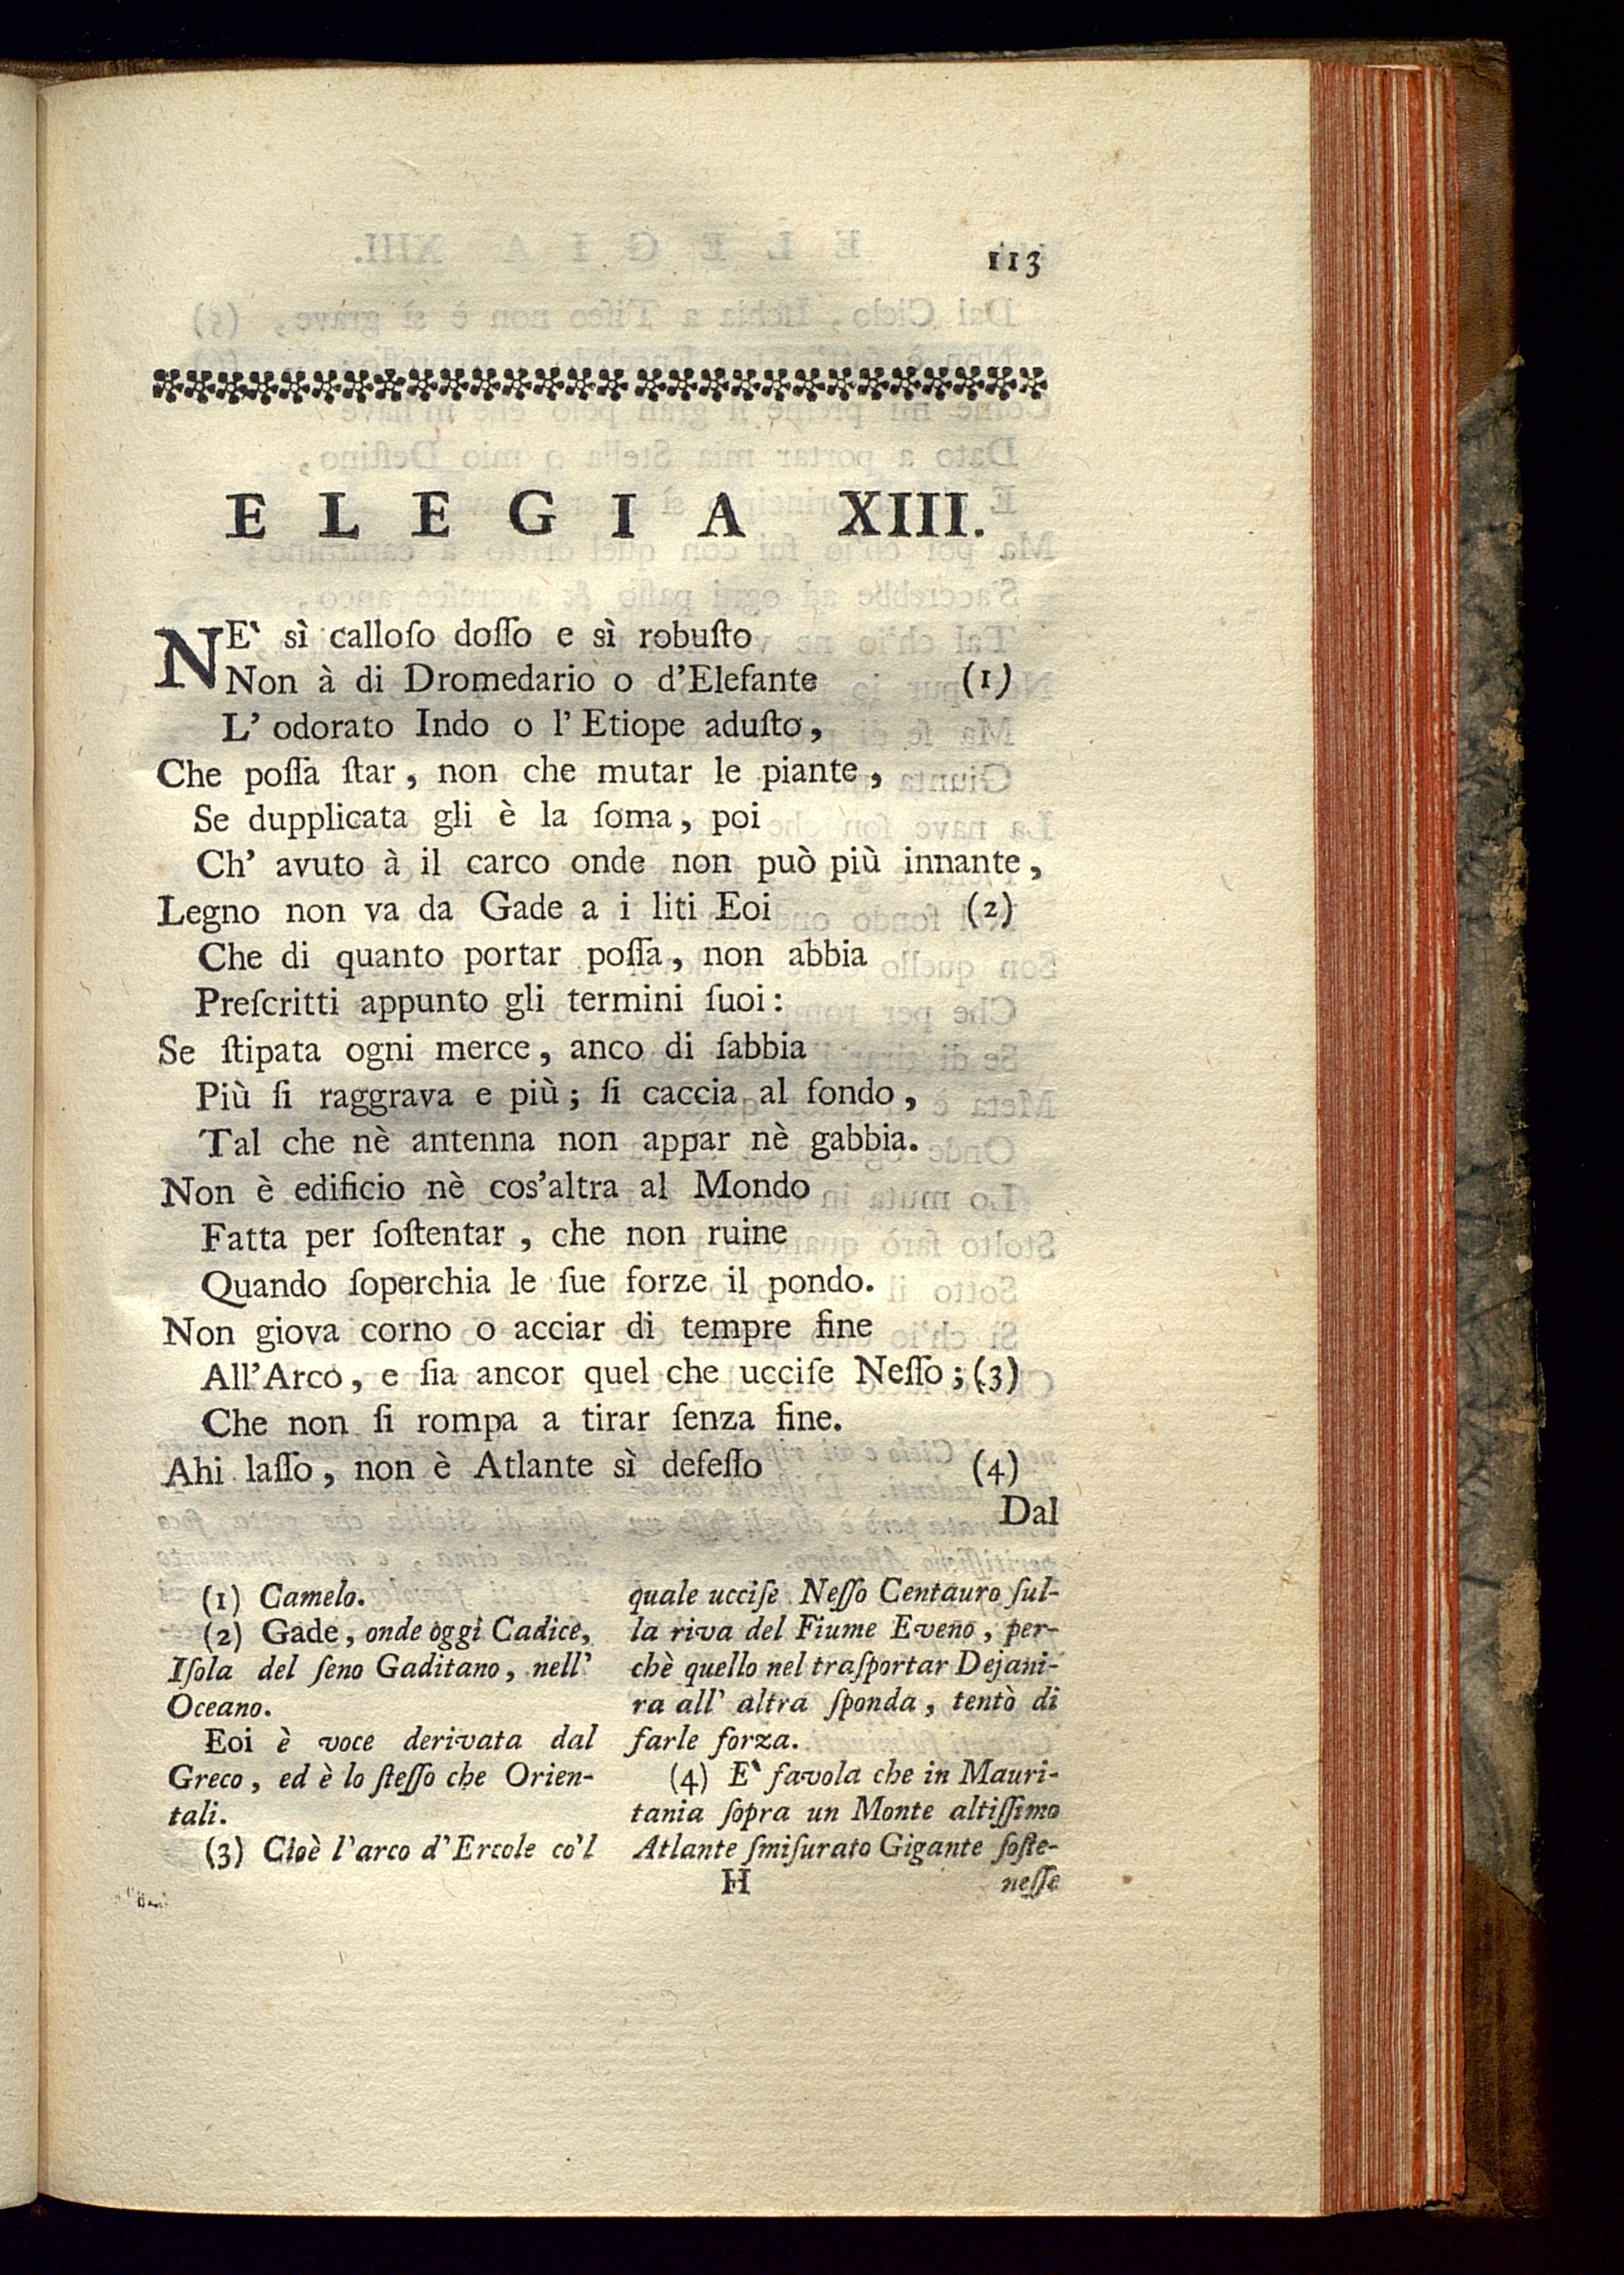 113
ELEGIA XIII.
NE' sì calloſo doſſo e sì robuſto
Non à di Dromedario o d'Elefante (1)
L' odorato Indo o l' Etiope aduſto,
Che poſſa ſtar, non che mutar le piante,
Se dupplicata gli è la ſoma, poi
Ch' avuto à il carco onde non può più innante,
Legno non va da Gade a i liti Eoi (2)
Che di quanto portar poſſa, non abbia
Preſcritti appunto gli termini ſuoi:
Se ſtipata ogni merce, anco di ſabbia
Più ſi raggrava e più; ſi caccia al fondo,
Tal che nè antenna non appar nè gabbia.
Non è edificio nè cos'altra al Mondo
Fatta per ſoſtentar, che non ruine
Quando ſoperchia le ſue forze il pondo.
Non giova corno o acciar di tempre fine
All'Arco, e ſia ancor quel che ucciſe Neſſo; (3)
Che non ſi rompa a tirar ſenza fine.
Ahi laſſo, non è Atlante sì defeſſo (4)
Dal
(1) Camelo.
(2) Gade, onde oggi Cadice,
Iſola del ſeno Gaditano, nell'
Oceano.
Eoi è voce derivata dal
Greco, ed è lo ſteſſo che Orien-
tali.
(3) Cioè l'arco d'Ercole co'l
quale ucciſe Neſſo Centauro ſul-
la riva del Fiume Eveno, per-
chè quello nel traſportar Dejani-
ra all' altra ſponda, tentò di
farle forza.
(4) E' favola che in Mauri-
tania ſopra un Monte altiſſimo
Atlante ſmiſurato Gigante ſoſte-
H
neſſe